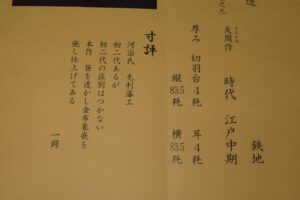 鉄地
時代 江戸中期
友周作
ともちか
厚み 切羽台4粍 耳4粍
縦83.5粍 横83.5粍
寸評
河治氏 毛利藩工
初二代あるが
初二代の区別はつかない
本作 笹を透かし金布象嵌を
施し仕上げてある
一鍔